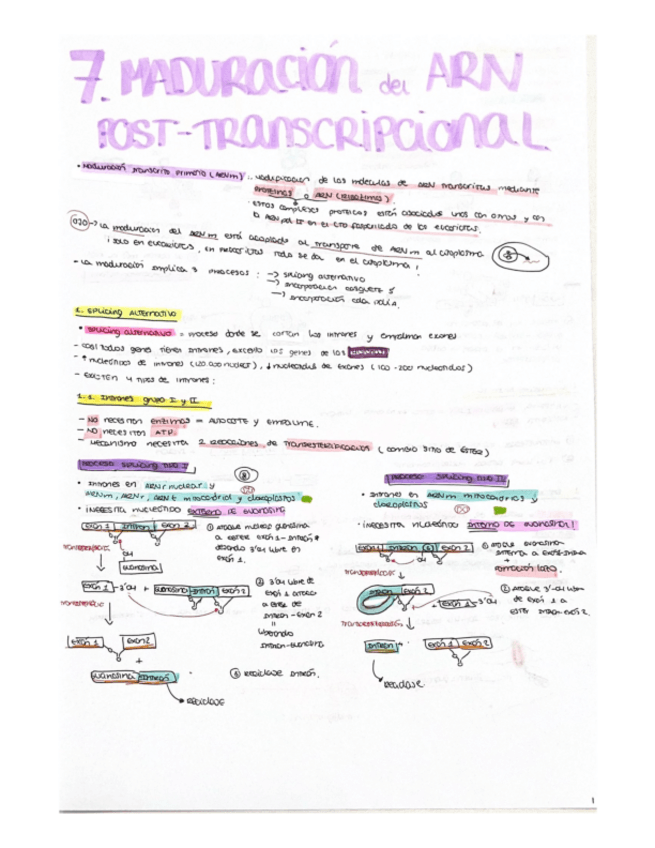 7. MADURACIÓN del ARN
POST-TRANSCRIPCIONAL
• Maduración transcrito primario (ARNm): modificación de las moléculas de ARN transcritas mediante
proteínas o ARN (ribozimas).
estos complejos proteicos están asociados unos con otros y con
la ARNpol II en el CTD fosforilado de los eucariotas.
OJO → La maduración del ARNm está acoplada al transporte de ARNm al citoplasma
¡solo en eucariotas, en procariotas todo se da en el citoplasma!
- La maduración implica 3 procesos: → splicing alternativo
→ incorporación casquete 5'
→ incorporación cola poliA.
1. SPLICING ALTERNATIVO
• Splicing alternativo = proceso donde se cortan los intrones y empalman exones
- casi todos genes tienen intrones, excepto los genes de las histonas
- ↑ nucleótidos de intrones (120.000 nucleot), ↓ nucleótidos de exones (100-200 nucleótidos)
- Existen 4 tipos de intrones:
1.1. Intrones grupo I y II
- NO necesitan enzimas = AUTOCORTE y EMPALME.
- NO necesitas ATP.
- mecanismo necesita 2 reacciones de TRANSESTERIFICACIÓN (cambio sitio de éster)
PROCESO SPLICING TIPO I
• Intrones en ARNr nuclear y
ARNm, ARNr, ARNt mitocondrias y cloroplastos
• INECESITA nucleótido EXTERNO DE GUANOSINA
EXÓN 1 INTRÓN EXÓN 2
OH
GUANOSINA
① Ataque nucleo guanosina
a éster exón 1 - intrón →
dejando 3'OH libre en
exón 1.
EXÓN 1 -3'OH + GUANOSINA INTRÓN EXÓN 2
② 3'OH libre de
exón 1 ataca
a éster de
intrón - exón 2
=
liberando
intrón-guanosina
EXÓN 1 EXÓN 2
+
GUANOSINA INTRÓN
③ Recíclase intrón.
→ RECICLASE
PROCESO SPLICING TIPO II
• Intrones en ARNm mitocondrias y
cloroplastos
• ¡NECESITA nucleótido INTERNO DE GUANOSINA!
EXÓN 1 INTRÓN G EXÓN 2
OH
① Ataque guanosina
interna a exón-intrón
+
FORMACIÓN LAZO.
INTRÓN EXÓN 2
+ EXÓN 1 -3'OH
② Ataque 3'-OH libre
de exón 1 a
éster intrón-exón 2.
INTRÓN + EXÓN 1 EXÓN 2
→ RECICLASE.
1